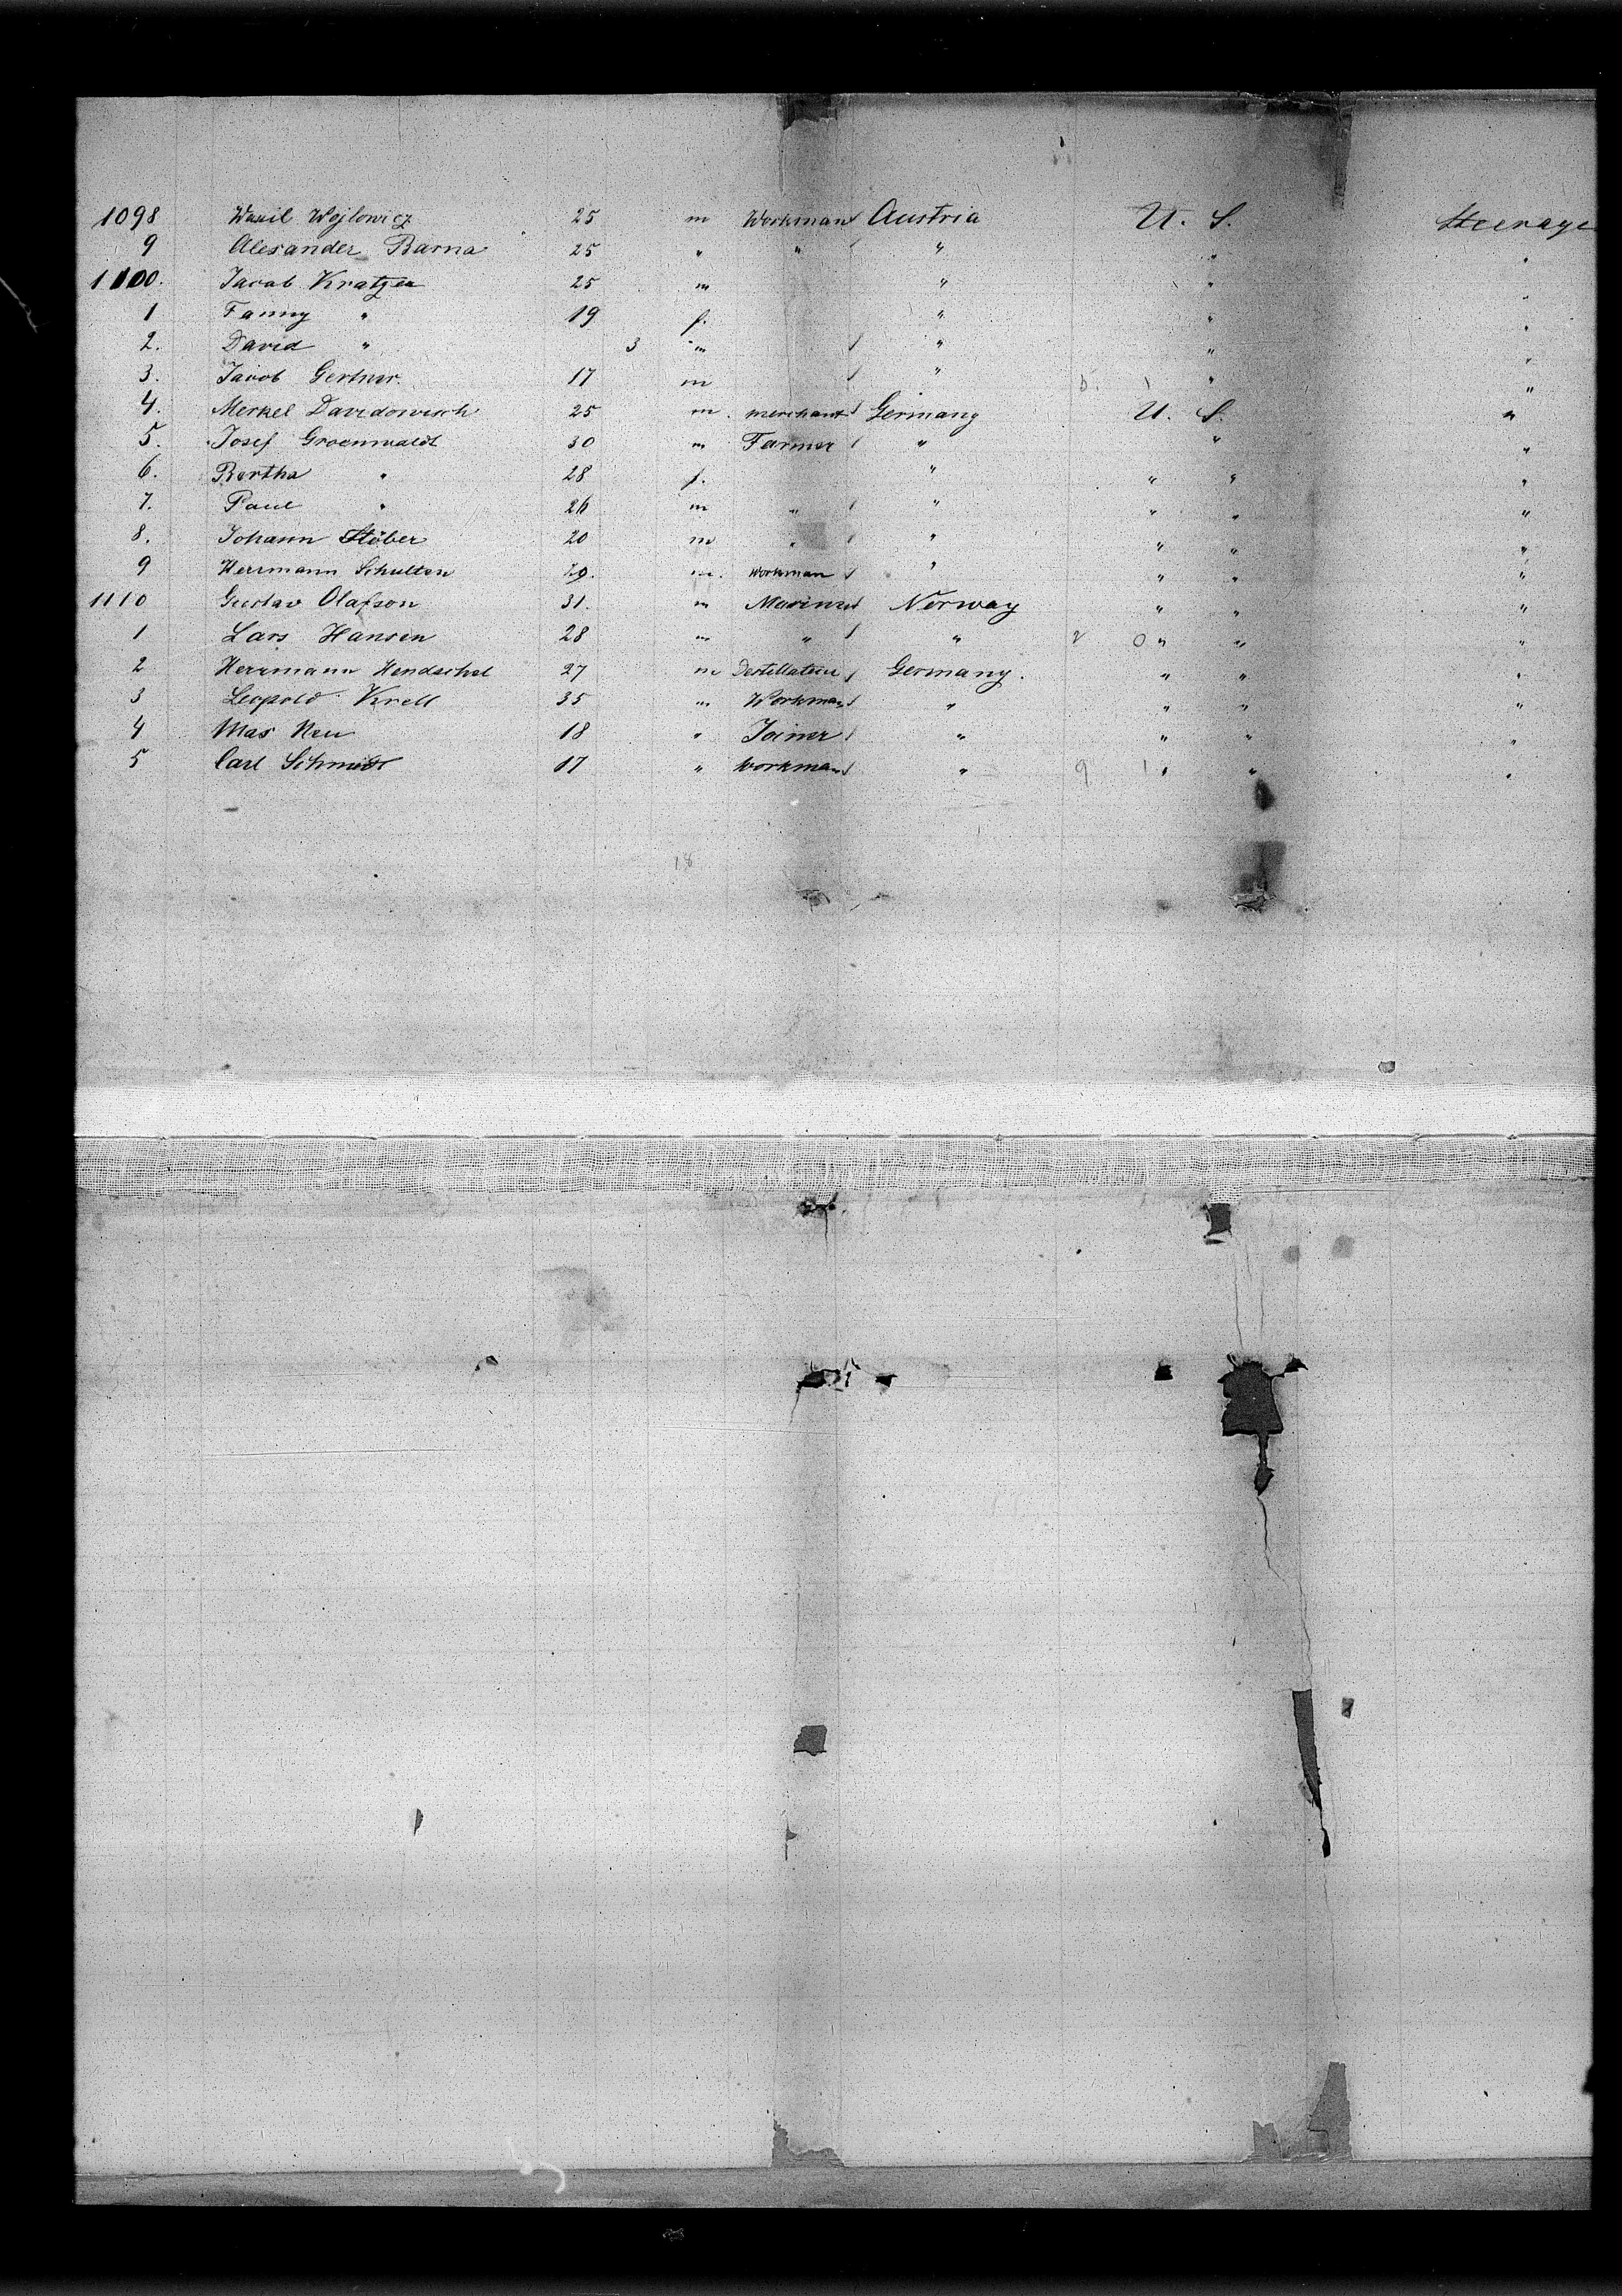 1098 Wasil Wojlowicz 25 m Workman Austria U. S. Steerage
9 Alexander Barna 25 " " " " "
1100. Jacob Kratzer 25 m " " "
1 Fanny " 19 f. " " "
2. David " 3 m " " "
3. Jacob Gertner. 17 m " 5. 1 " "
4. Merkel Davidowisch 25 m. merchant Germany U. S. "
5. Josef Groenwaldt 30 m Farmer " " "
6. Bertha " 28 f. " " " "
7. Paul " 26 m " " " " "
8. Johann Stöber 20 m " " " " "
9 Herrmann Schulten 29. m. workman " " " "
1110 Gustav Olafson 31. m Mariner Norway " " "
1 Lars Hansen 28 m " " 2 0 " " "
2 Herrmann Hendschel 27 m Destillateur Germany. " " "
3 Leopold Krell 35 m Workman " " " "
4 Max Neu 18 " Joiner " " " "
5 Carl Schmidt 17 " workman " 9 1 " " "
18